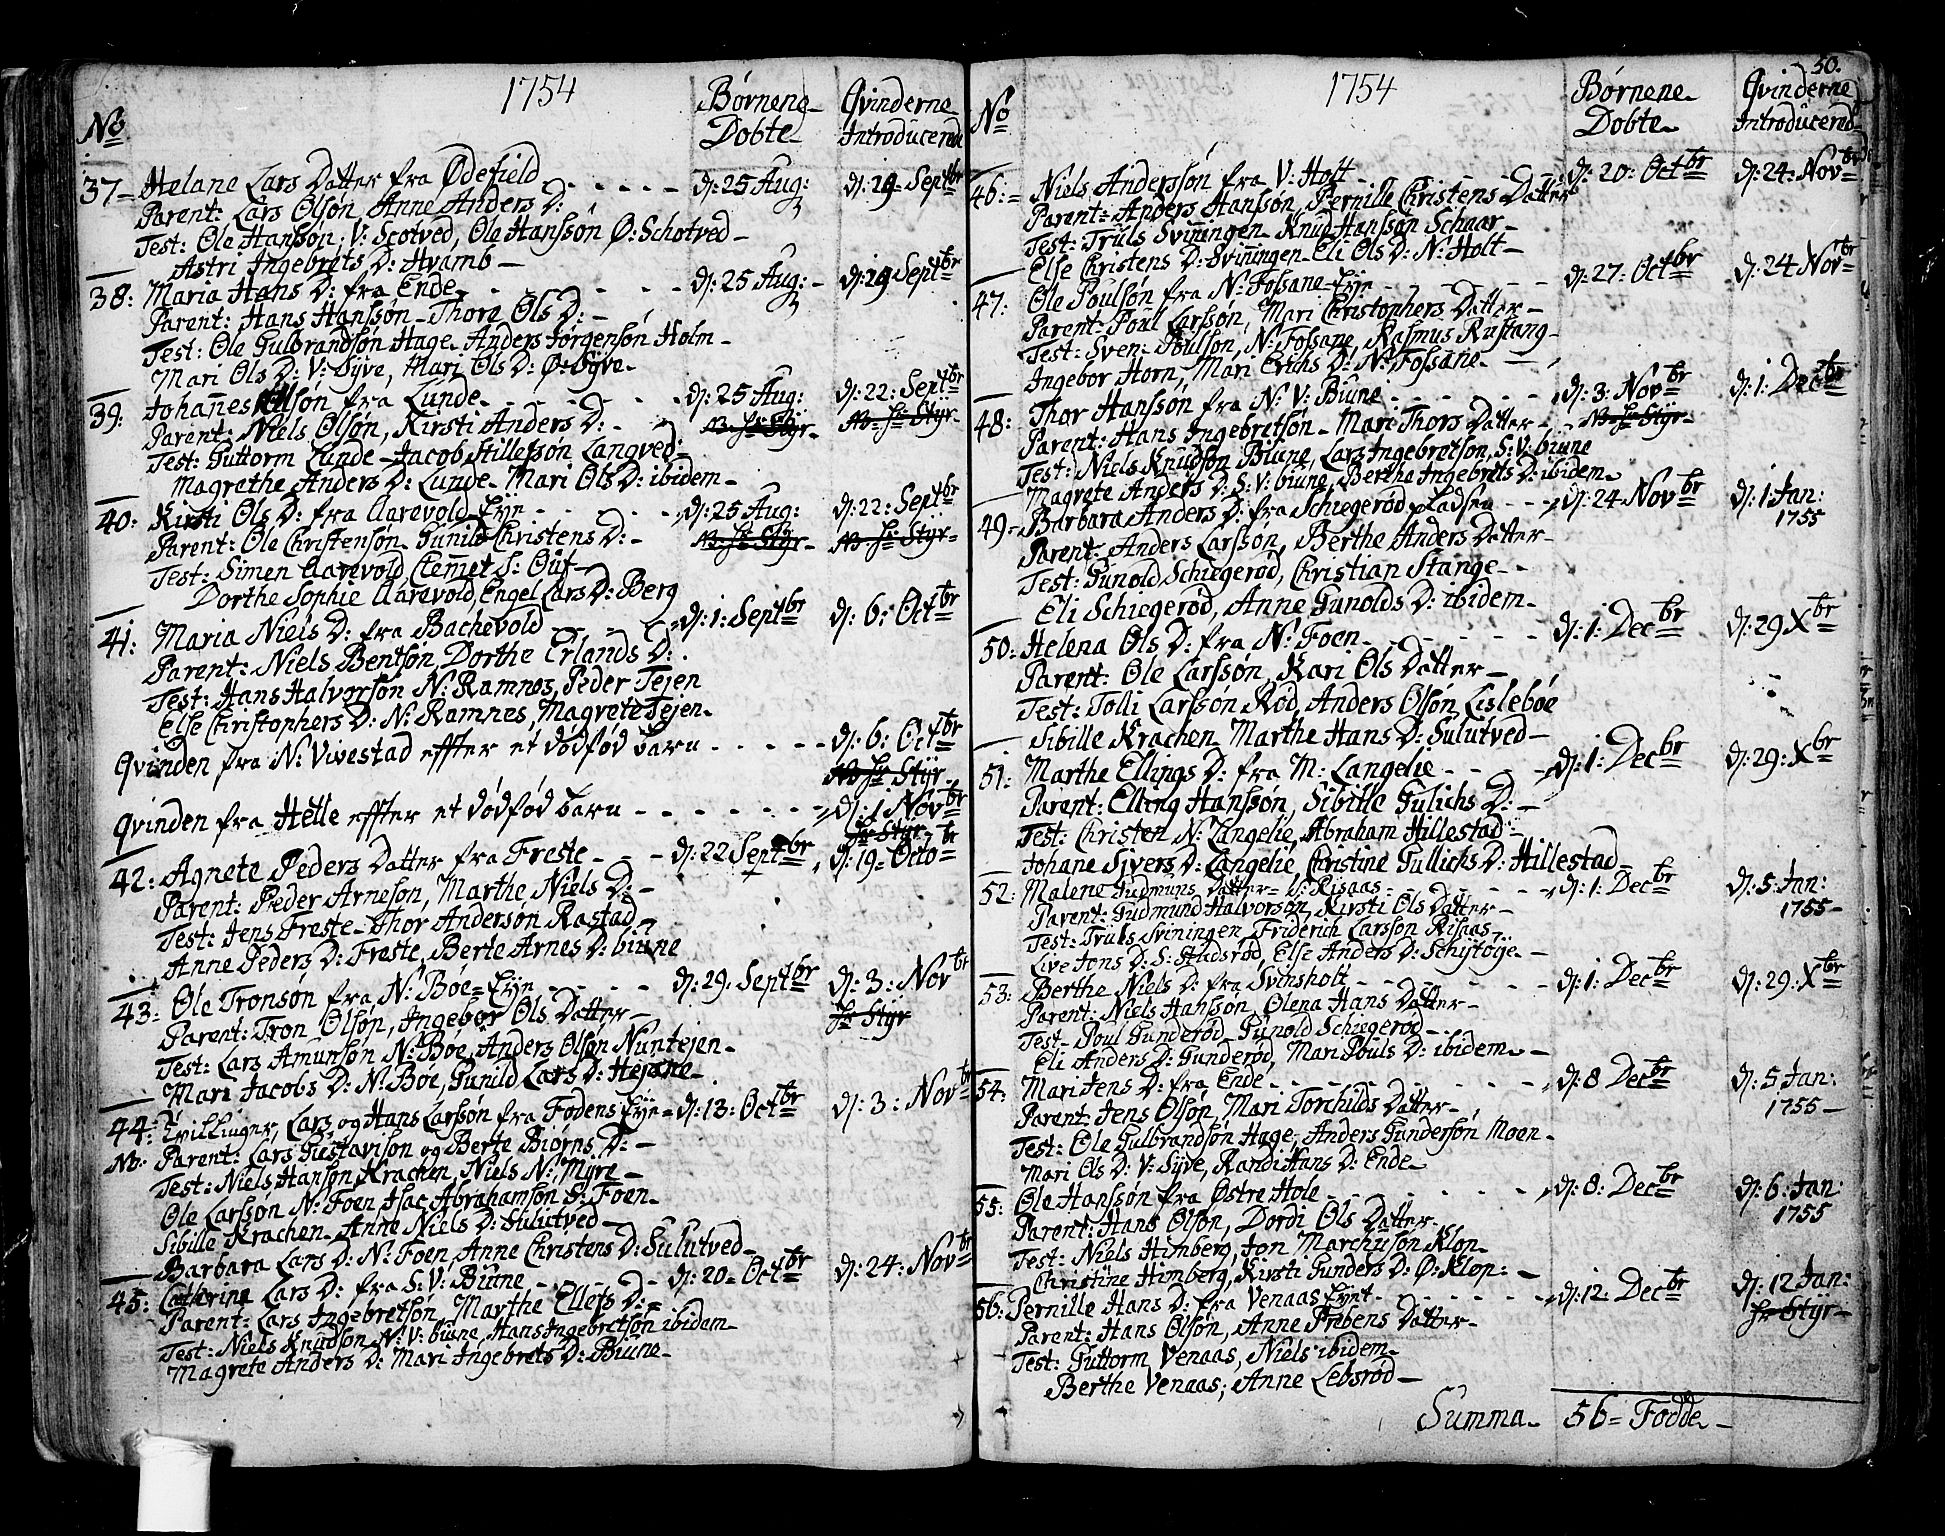 1754
No
Børnene Døbte
Qvinderne Introducered
37 - Helane Lars Datter fra Ødefield - - - - - d: 25 Aug: d: 19 Septbr
Parent: Lars Olsøn, Anne Anders D: -
Test: Ole Hanssøn, V: Scotved, Ole Hanssøn Ø: Schotved -
Astri Ingebrets D: Hvamb -
38: Maria Hans D: fra Ende - - - - - d: 25 Aug: - d: 19 Septbr
Parent: Hans Hanssøn - Thore Ols D: -
Test: Ole Gulbrandsøn Hage - Anders Jørgensøn Holm -
Mari Ols D: V: Syve, Mari Ols D: Ø: Syve -
39: Johannes fra Lunde - - - - - d: 25 Aug: d: 22: Septbr
Parent: Niels Olsøn, Kirsti Anders D: - NB. Hr Styr - NB. Hr Styr -
Test: Guttorm Lunde - Jacob Stillefsøn Langved:
Magrethe Anders D: Lunde - Mari Ols D: ibidem -
40: Kirsti Ols D: fra Aarevold Eyn - - - - d: 25 Aug: d: 22: Septbr
Parent: Ole Christensøn, Gunild Christens D: - NB. Hr Styr - NB. Hr Styr -
Test: Simen Aarevold, Clemet S: Ouf -
Dorthe Sophie Aarevold, Engel Lars D: Berg
41: Maria Niels D: fra Bachevold - - - - d: 1: Septbr d: 6: Octbr
Parent: Niels Bentsøn, Dorthe Erlands D:
Test: Hans Halvorsøn N: Ramnes, Peder Tejen
Else Christophers D: N: Ramnes, Magrete Tejen -
Qvinden fra N: Vivestad effter et dødfød barn - - - - - d: 6: Octbr
NB Hr Styr -
Qvinden fra Helle effter et dødfød barn - - - - - - - d: 1 Novbr
Hr Styr -
42: Agnete Peders Datter fra Freste - - - d: 22 Septbr d: 19: Octobr
Parent: Peder Arnesøn, Marthe Niels D: -
Test: Jens Freste - Thor Andersøn Rastad -
Anne Peders D: Freste, Berte Arnes D: biune
43: Ole Tronsøn fra N: Bøe - Eyn - - - - d: 29. Septbr d: 3: Novbr
Parent: Tron Olsøn, Ingebor Ols Datter - Hr Styr
Test: Lars Amunsøn N: Bøe, Anders Olsøn Nuntejen -
Mari Jacobs D: N: Bøe, Gunild Lars D: Hejane -
44: Tvillinger, Lars og Hans Larssøn fra Fodens Eyn - d: 13: Octbr d: 3: Novbr
Nb. Parent: Lars Gustavison og Berte Biørns D: -
Test: Niels Hansøn Krachen, Niels N: Myre -
Ole Larssøn N: Foen Isac Abrahamsøn S: Foen -
Sibille Krachen - Anne Niels D: Sulutved -
Barbara Lars D: N: Foen, Anne Christens D: Sulutved -
45: Cathrine Lars D: fra S: V: Biune - - - - d: 20 - Octbr d: 24: Novbr
Parent: Lars Ingebretsøn, Marthe Ellefs D: -
Test: Niels Knudsøn N: V: biune, Hans Ingebretsøn ibidem -
Magrete Anders D: Mari Ingebrets D: Biune -
50.
1754
No
Børnene Døbte
Qvinderne Introducered
46: - Niels Anderssøn fra V: Holt - - - - - d: 20: Octbr d: 24: Novbr
Parent: Anders Hanssøn, Pernille Christens Datter
Test: Truls Svinningen - Knud Hanssøn Schaar -
Else Christens D: Svinningen - Eli Ols D: N: Holt -
47: Ole Poulsøn fra N: Fossane - Eyn - - - - d: 27: Octbr d: 24 Novbr
Parent: Poul Larssøn, Mari Christophers Datter -
Test: Sven Poulsøn, N: Fossane, Rasmus Rustang -
Ingebor Horn, Mari Erichs D: N: Fossane -
48: Thor Hanssøn fra N: V: Biune - - - - - d: 3: Novbr d: 1: Decbr
Parent: Hans Ingebretsøn - Mari Thors Datter - - NB. Hr Styr -
Test: Niels Knudsøn Biune, Lars Ingebretsøn, S: V: biune
Magrete Anders D: S: V: biune, Berthe Ingebrets D: ibidem -
49: - Barbara Anders D: fra Schiegerød Pladsen - - d: 24 Novbr d: 1 Jan: 1755
Parent: Anders Larssøn, Berthe Anders Datter -
Test: Gunold Schiegerød, Christian Stange -
Eli Schiegerød, Anne Gunolds D: ibidem -
50: Helena Ols D: fra N: Foen - - - - - d: 1: Decbr d: 29 Xbr
Parent: Ole Larssøn, Kari Ols Datter -
Test: Tolli Larssøn Rød, Anders Olsøn Lislebøe
Sibille Krachen, Marthe Hans D: Sulutved -
51: Marthe Ellings D: fra M: Langelie - - - d: 1: Decbr d: 29: Xbr
Parent: Elling Hanssøn, Sibille Gulichs D: -
Test: Christen N: Langelie, Abraham Hillestad -
Johane Sivers D: Langelie, Christine Gullichs D: Hillestad -
52: Malene Gudmuns Datter - S: Risaas - - - - d: 1: Decbr d: 5: Jan: 1755 -
Parent: Gudmund Halvorsøn, Kirsti Ols Datter -
Test: Truls Sviningen, Friderich Larssøn Risaas -
Live Jons D: S: Studsrød, Else Anders D: Schytøye -
53: Berthe Niels D: fra Svinsholt - - - - d: 1: Decbr d: 29: Xbr
Parent: Niels Hanssøn, Olena Hans Datter -
Test: Poul Gunderød, Gunold Schiegerød -
Eli Anders D: Gunderød, Mari Pouls D: ibidem -
54: Mari Jens D: fra Ende - - - - - d: 8 Decbr d: 5 Jan: 1755 -
Parent: Jens Olsøn, Mari Torchilds Datter -
Test: Ole Gulbrandsøn Hage, Anders Gundersøn Moen -
Mari Ols D: V: Syve, Randi Hans D: Ende -
55: Ole Hanssøn fra Østre Hole - - - - - d: 8: Decbr d: 6: Jan: 1755
Parent: Hans Olsøn, Dordi Ols Datter -
Test: Niels Himberg, Jon Marchusøn Klop -
Christine Himberg, Kirsti Gunders D: Ø: Klop: -
56: Pernille Hans D: fra Venaas Eynt - - - - d: 12: Decbr d: 12 Jan:
Parent: Hans Olsøn, Anne Prebens Datter - Hr Styr -
Test: Guttorm Venaas, Niels ibidem -
Berthe Venaas; Anne Lebsrød -
Summa - 56 - Fødde -